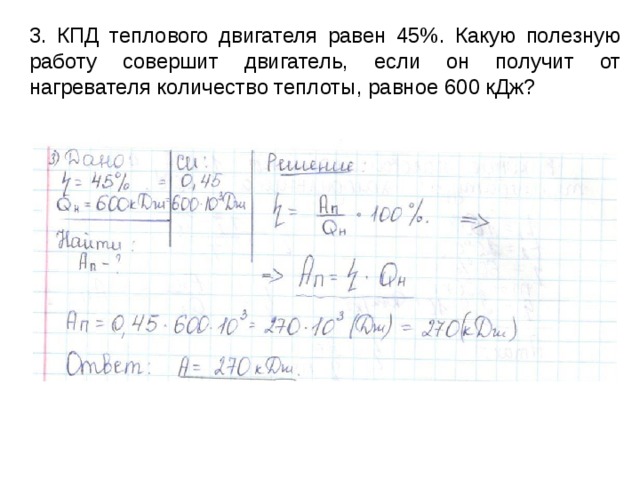 3. КПД теплового двигателя равен 45%. Какую полезную
работу совершит двигатель, если он получит от
нагревателя количество теплоты, равное 600 кДж?
3) Дано: СИ: Решение:
η = 45% = 0,45
Qн = 600 кДж 600·10³Дж
η = Aп/Qн · 100%. =>
Найти:
Aп - ?
=> Aп = η · Qн
Aп = 0,45 · 600·10³ = 270·10³ (Дж) = 270(кДж)
Ответ: A = 270 кДж.